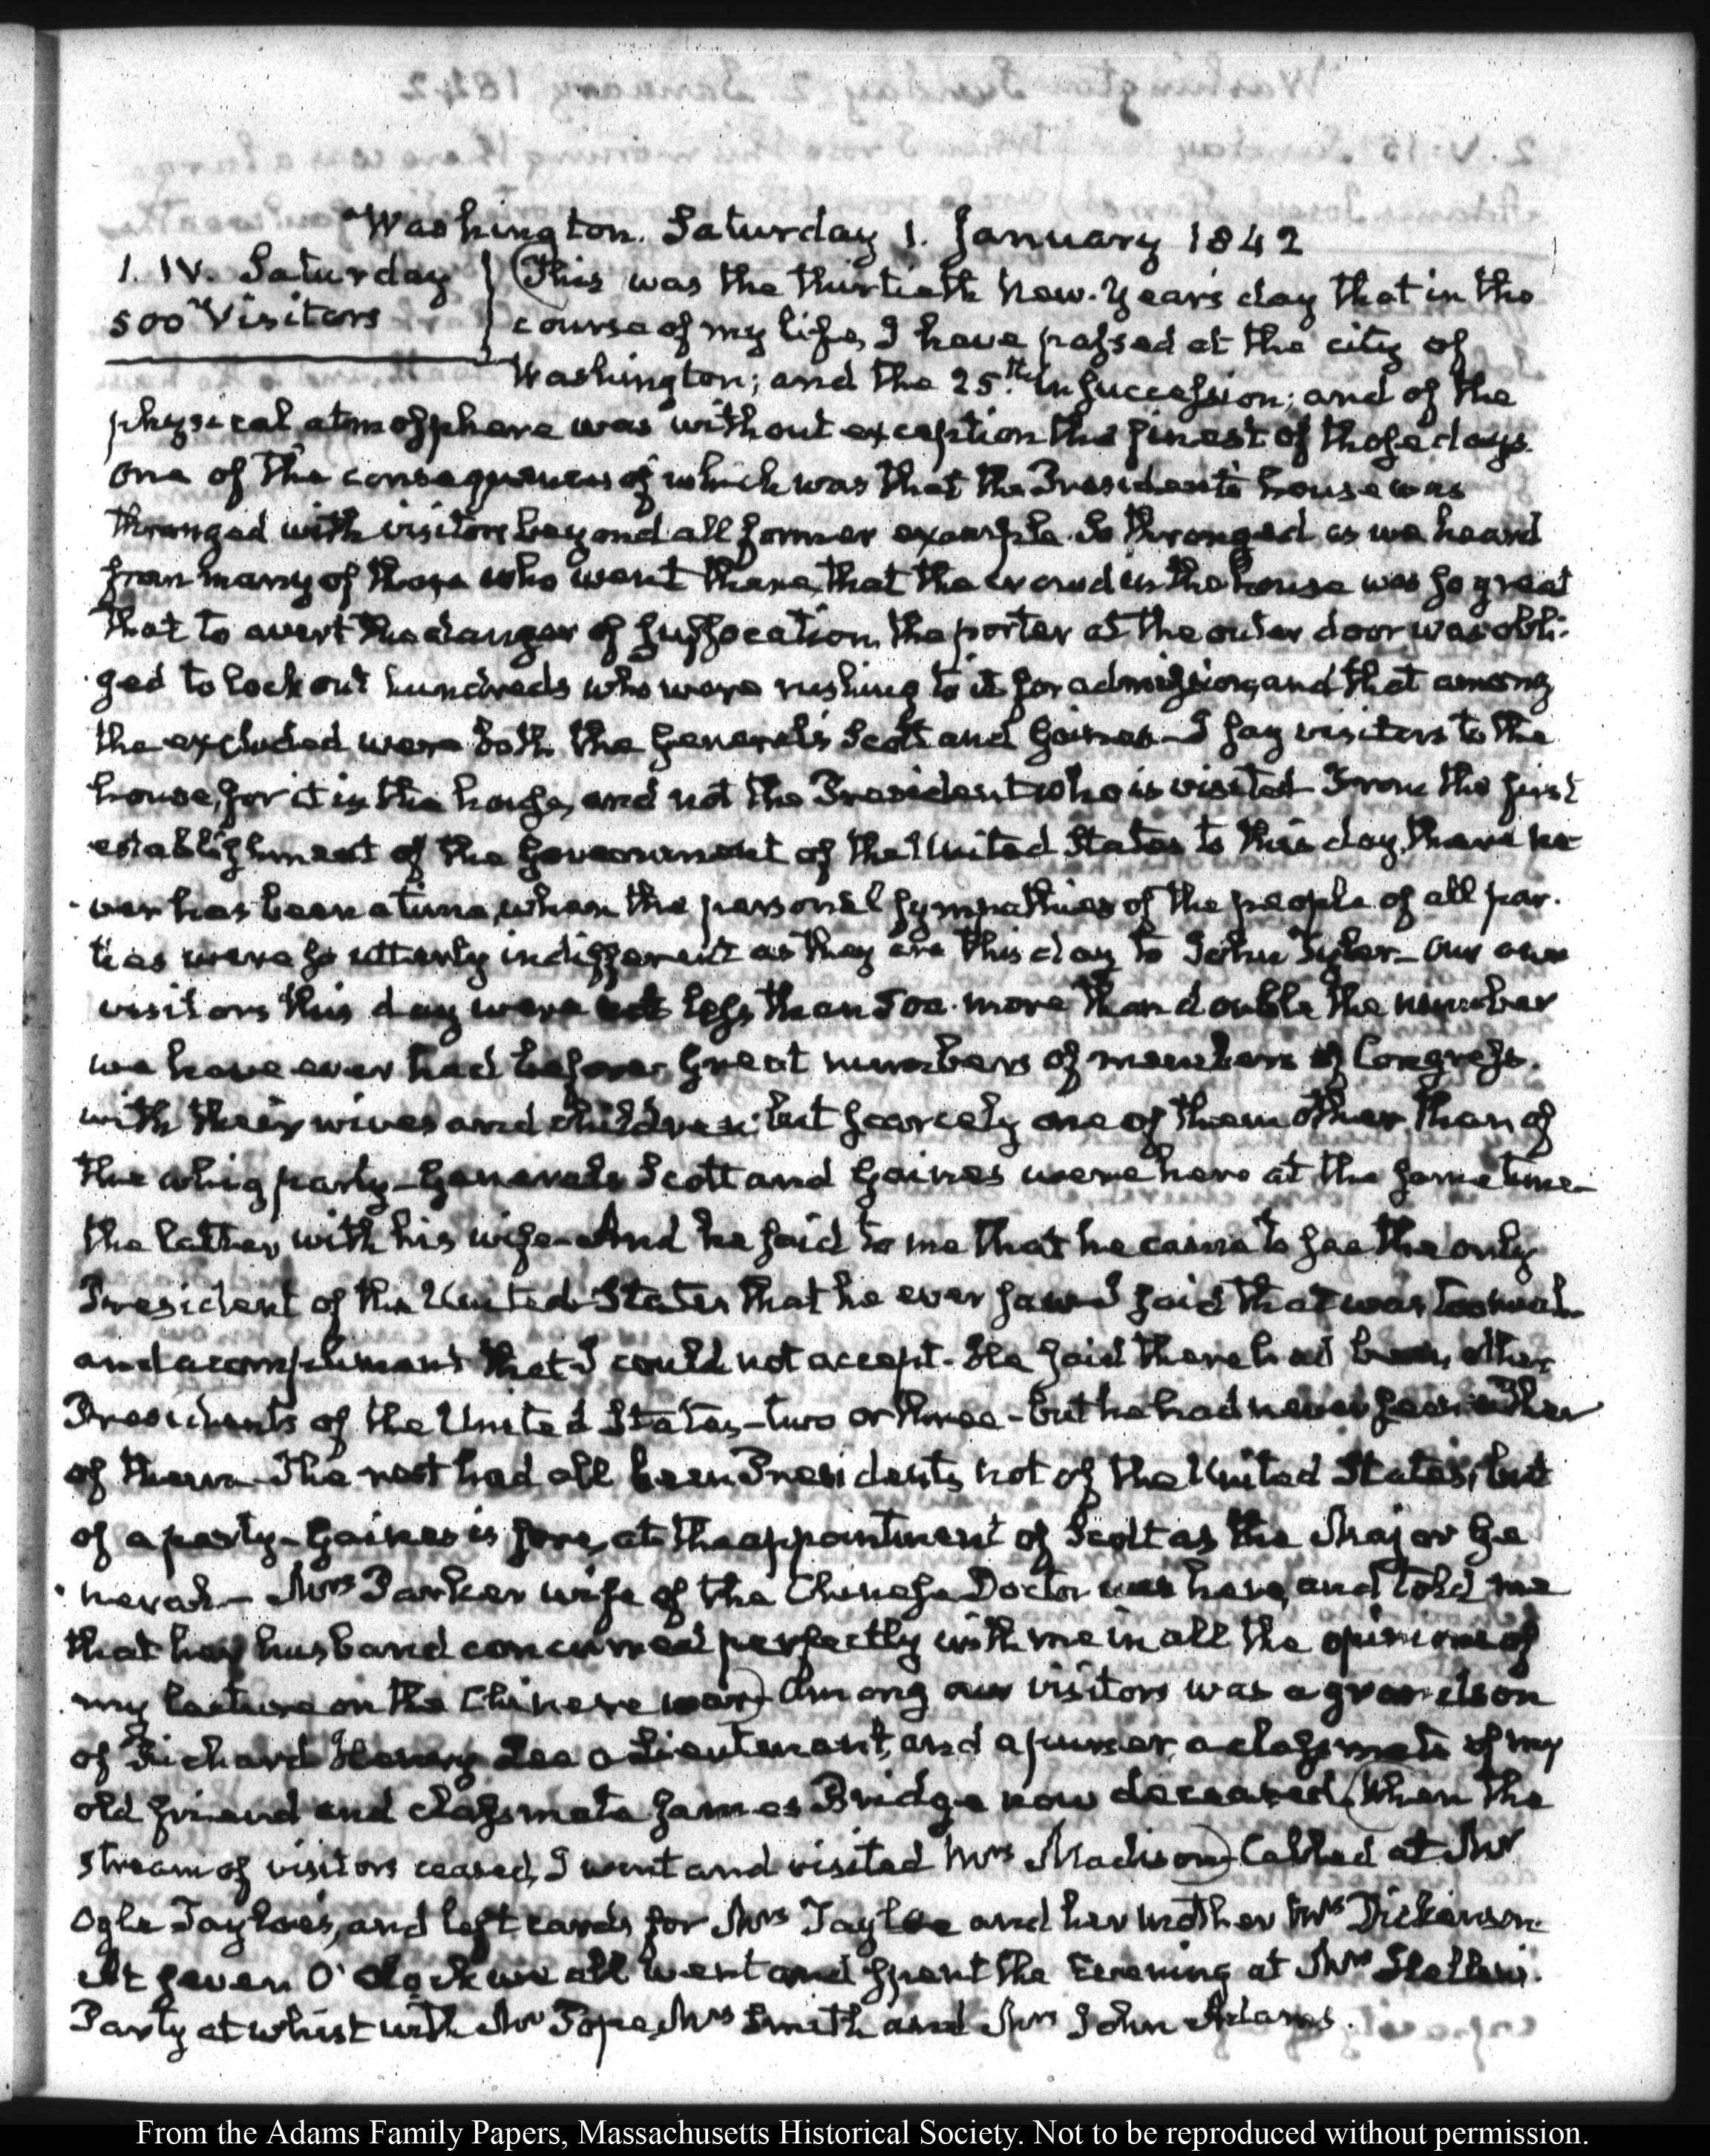 Washington. Saturday 1. January 1842
1. IV. Saturday
500 Visitors
This was the thirtieth New-Year's day that in the
course of my life, I have passed at the city of
Washington; and the 25th. in succession; and of the
physical atmosphere was without exception the finest of those days.
one of the consequences of which was that the President's house was
thronged with visitors beyond all former example. So thronged, as we heard
from many of those who went there, that the crowd in the house was so great
that to avert the danger of suffocation, the porter at the outer door was obli-
ged to lock out hundreds who were rushing to it for admission, and that among
the excluded were both the General's Scott and Gaines— I say visitors to the
house, for it is the house, and not the President who is visited— From the first
establishment of the Government of the United States to this day, there ne-
ver has been a time, when the personal sympathies of the people of all par-
ties were so utterly indifferent as they are this day to John Tyler— Our own
visitors this day were not less than 500. more than double the number
we have ever had before. Great numbers of members of Congress.
with their wives and children: but scarcely one of them other than of
the whig party— Generals Scott and Gaines were here at the same time—
the latter with his wife— And he said to me that he came to see the only
President of the United States that he ever saw— I said that was
and a compliment that I could not accept. He said there had been other
Presidents of the United States,— two or three— but he had never seen either
of them— The rest had all been Presidents, not of the United States, but
of a party— Gaines is sore, at the appointment of Scott as the Major Ge-
neral— Mrs Parker wife of the Chinese Doctor was here, and told me
that her husband concurred perfectly with me in all the opinions of
my lecture on the Chinese war) Among our visitors was a grandson
of Richard Henry Lee a Lieutenant, and a purser, a classmate of my
old friend and classmate James Bridge now deceased. (When the
stream of visitors ceased, I went and visited Mrs Madison) Called at Mr
Ogle Tayloe's, and left cards for Mrs Tayloe and her mother Mrs Dickinson
At seven O'Clock we all went and spent the Evening at Mrs
Party at whist with Mr Pope, Mrs Smith and Mrs John Adams.
From the Adams Family Papers, Massachusetts Historical Society. Not to be reproduced without permission.